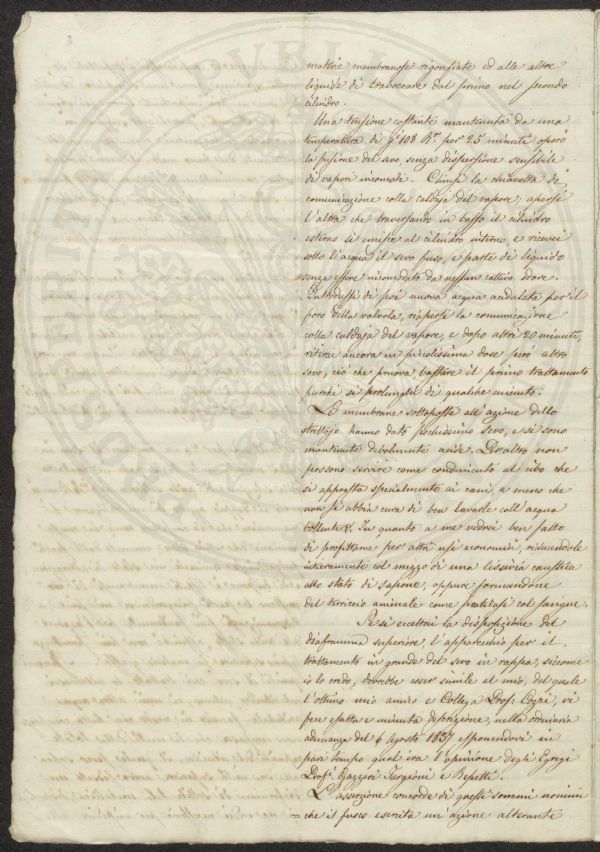 mattrie membranose rigonfiate ed alle altre
liquide di traboccare dal primo nel secondo
cilindro.
Una tensione costante mantenuta da una
temperatura di gi 108 Rr. per 25 minuti operò
la fusione del sevo, senza dispersione sensibile
di vapori incomodi. Chiusi la chiavetta di
comunicazione colla caldaja del vapore; apersi
l'altra che traversando in basso il cilindro
esterno si unisce al cilindro interno, e ricevei
sotto l'acqua il sevo fuso, e parte di liquido
senza essere incomodato da nessun cattivo odore.
Introdussi di poi nuova acqua acidulata per il
foro della valvola, riapersi la comunicazione
colla caldaja del vapore, e dopo altri 20 minuti,
ritirai ancora in piccolissima dose però altro
sevo, ciò che pruova bastare il primo trattamento
purchè si prolunghi di qualche minuto.
Le membrane sottoposte all'azione dello
strettojo hanno dato pochissimo sevo, e si sono
mantenute debolmente acide. Peraltro non
possono servire come condimento al cibo che
si appresta specialmente ai cani, a meno che
non si abbia cura di ben lavarle coll'acqua
bollente. In quanto a me vedrei ben fatto
di profittarne per altri usi economici, riducendole
interamente col mezzo di una lissivia caustica
allo stato di sapone, oppure formandone
del terriccio animale come praticasi col sangue.
Se si eccettui la disposizione del
diaframma superiore, l'apparecchio per il
trattamento in grande del sevo in rappa, siccome
io lo credo, dovrebbe esser simile al mio, del quale
l'ottimo mio amico e Collega Prof. Cozzi, vi
fece esatta e minuta descrizione, nella ordinaria
adunanza del 6 Agosto 1837 esponendovi in
pari tempo qual era l'opinione degli Egregi
Prof. Gazzeri Targioni e Repetti.
L'asserzione concorde di questi sommi uomini
che il fuoco esercita un azione alterante